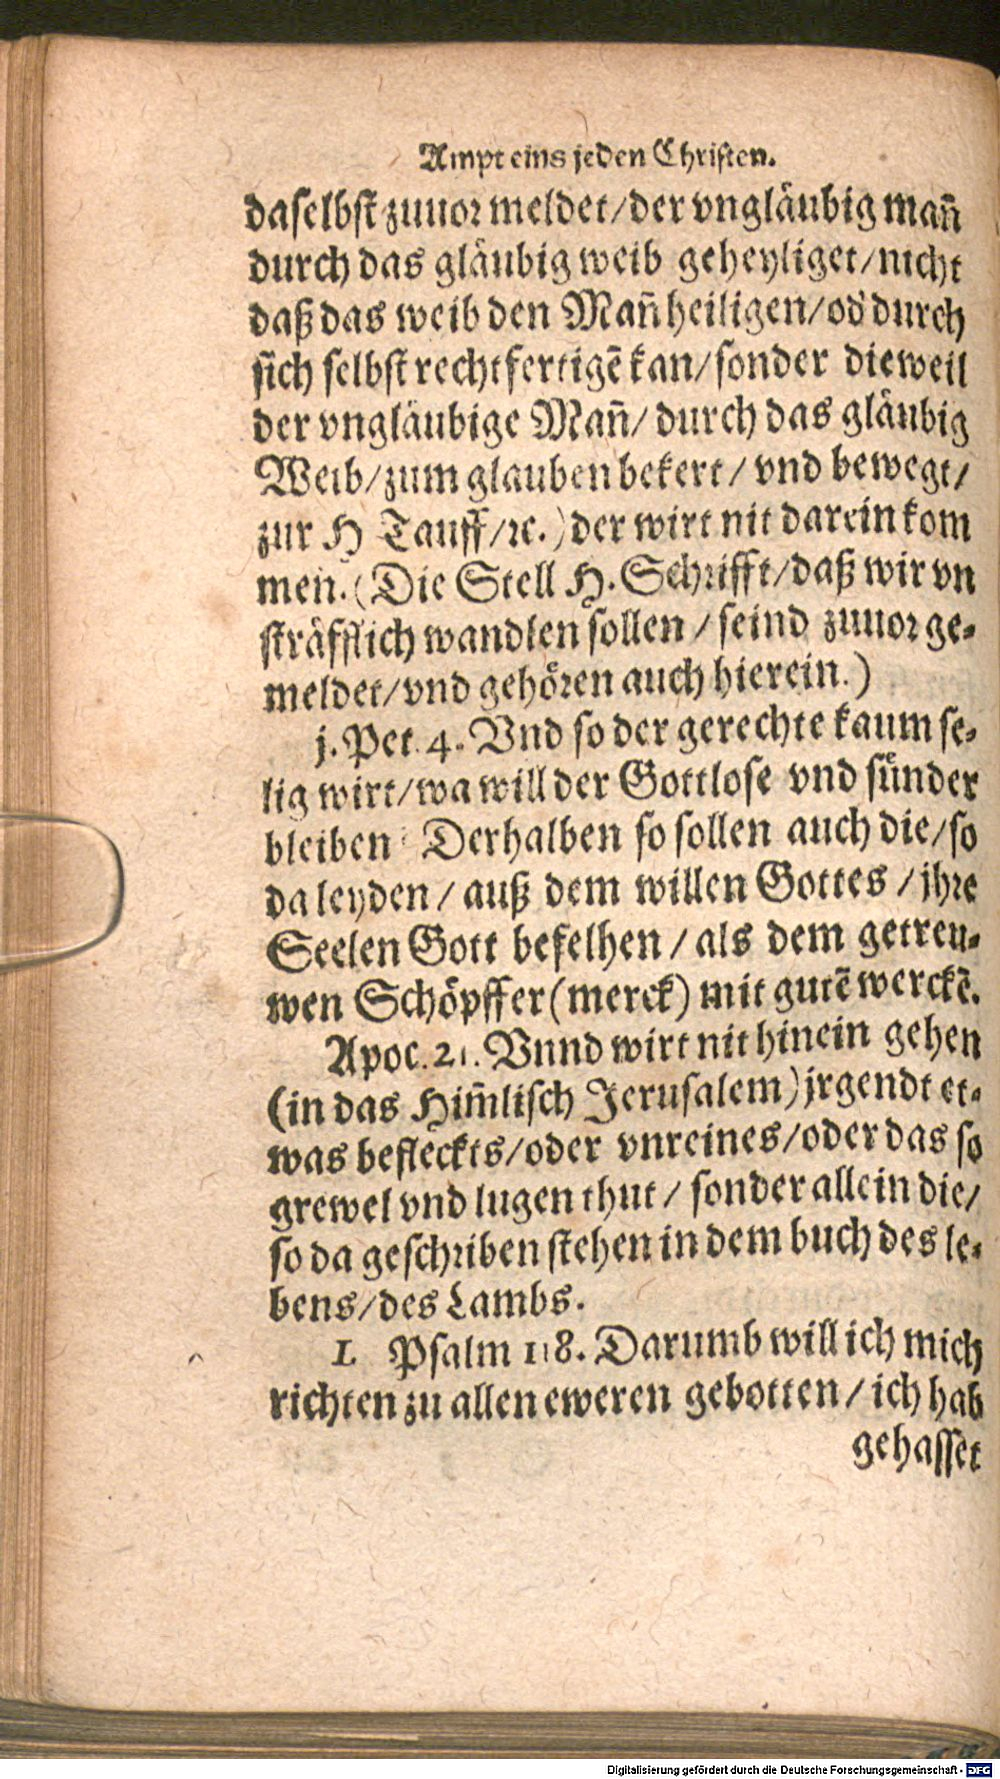 Ampt eins jeden Christen.
daselbst zuuor meldet/der vngläubig mañ
durch das gläubig weib geheyliget/nicht
daß das weib den Mañ heiligen/od' durch
sich selbst rechtfertigē kan/sonder dieweil
der vngläubige Mañ/ durch das gläubig
Weib/zum glauben bekert/ vnd bewegt/
zur H Tauff/ꝛc.) der wirt nit darein kom
men. (Die Stell H. Schrifft/daß wir vn
sträfflich wandlen sollen / seind zuuor ge-
meldet/vnd gehören auch hierein.)
j. Pet. 4. Vnd so der gerechte kaum se-
lig wirt/wa will der Gottlose vnd sünder
bleiben Derhalben so sollen auch die/so
da leyden / auß dem willen Gottes / jhre
Seelen Gott befelhen / als dem getreu-
wen Schöpffer (merck) mit gutē werckē.
Apoc. 21. Vnnd wirt nit hinein gehen
(in das Him̃lisch Jerusalem) jrgendt et-
was befleckts/oder vnreines/oder das so
grewel vnd lugen thut / sonder allein die/
so da geschriben stehen in dem buch des le-
bens/des Lambs.
1. Psalm 118. Darumb will ich mich
richten zu allen eweren gebotten / ich hab
gehasset
Digitalisierung gefördert durch die Deutsche Forschungsgemeinschaft - DFG